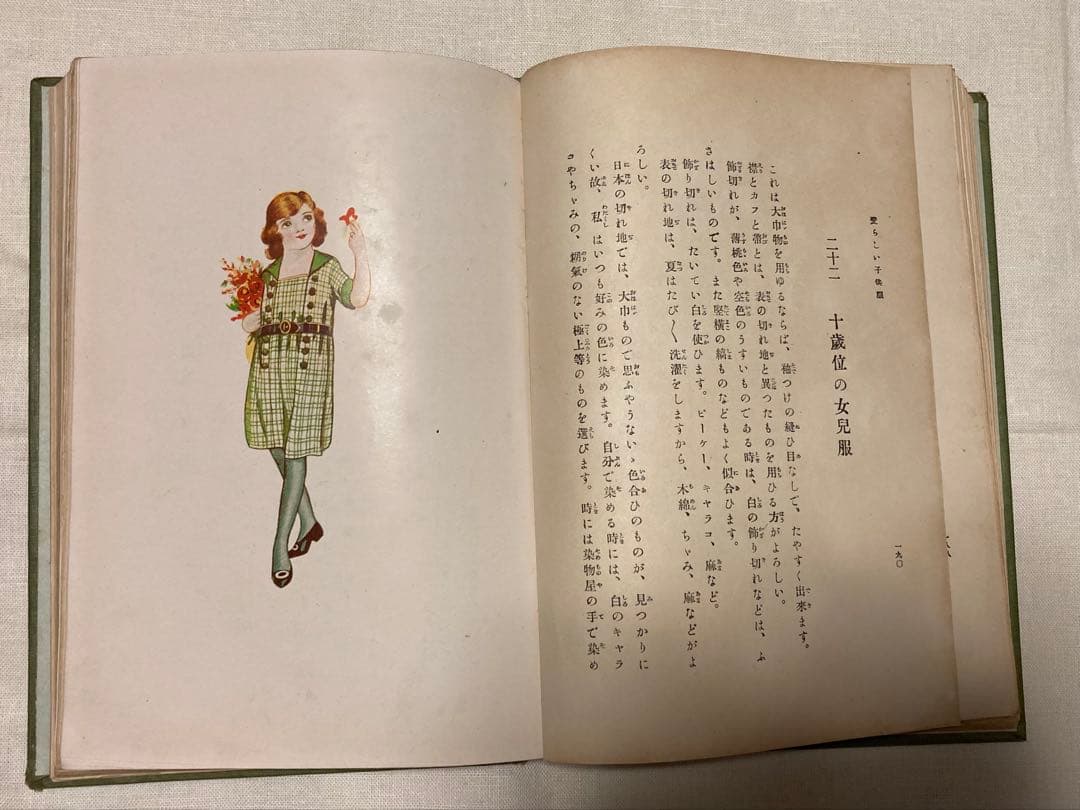 愛らしい子供服
一九〇
二十二 十歳位の女兒服
これは大巾物を用ゆるならば、袖つけの縫ひ目なしで、たやすく出來ます。
襟とカフと帶とは、表の切れ地と異つたものを用ひる方がよろしい。
飾切れが、薄桃色や空色のうすいものである時は、白の飾り切れなどは、ふ
さはしいものです。また竪横の縞ものなどもよく似合ひます。
飾り切れは、たいてい白を使ひます。ピーケー、キャラコ、麻など。
表の切れ地は、夏はたび〳〵洗濯をしますから、木綿、ちゃみ、麻などがよ
ろしい。
日本の切れ地では、大巾もので思ふやうないゝ色合ひのものが、見つかりに
くい故、私はいつも好みの色に染めます。自分で染める時には、白のキャラ
コやちゃみの、糊氣のない極上等のものを選びます。時には染物屋の手で染め